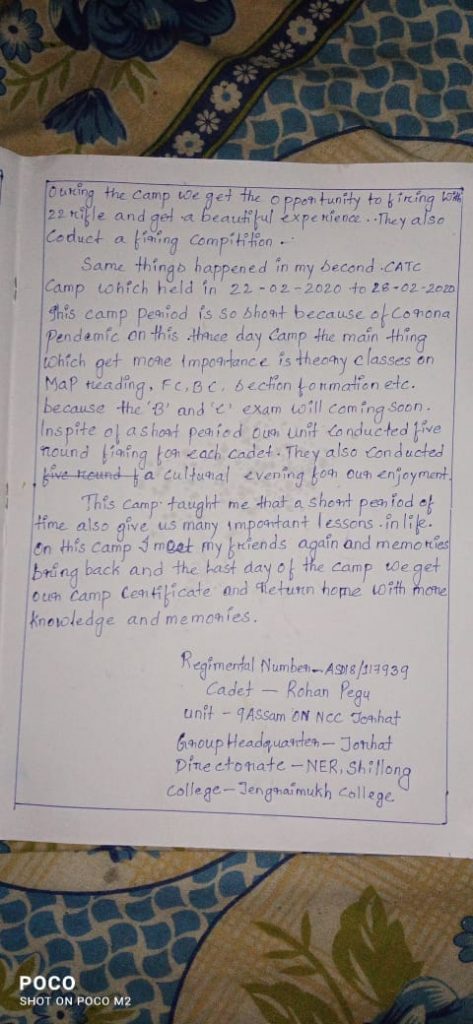 During the camp we get the opportunity to firing with
22 rifle and get a beautiful experience.. They also
Coduct a firing compitition.
Same things happened in my second CATC
Camp which held in 22-02-2020 to 28-02-2020
This camp period is so short because of Corona
Pendemic on this three day Camp the main thing
which get more importance is theory classes on
MaP reading, FC, BC, section formation etc.
because the 'B' and 'C' exam will coming soon.
Inspite of a short period our unit conducted five
round firing for each cadet. They also conducted
five round f a cultural evening for our enjoyment.
This camp taught me that a short period of
time also give us many important lessons in life.
On this camp I meet my friends again and memories
bring back and the last day of the camp we get
our camp Certificate and Return home with more
knowledge and memories.
Regimental Number - ASD18/117939
Cadet - Rohan Pegu
unit - 9 Assam ON NCC Jorhat
Group Headquarter - Jorhat
Directorate - NER, Shillong
College - Jengraimukh College
POCO
SHOT ON POCO M2